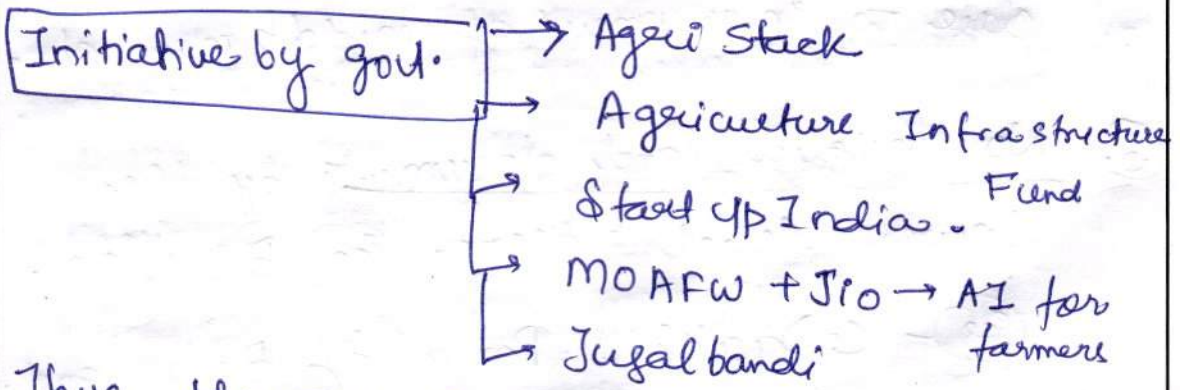 Initiative by govt.
→ Agri Stack
→ Agriculture Infrastructure
Fund
→ Start up India.
→ MOAFW + Jio → AI for
farmers
→ Jugalbandi
Thus